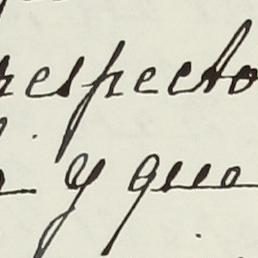 respecto
y que